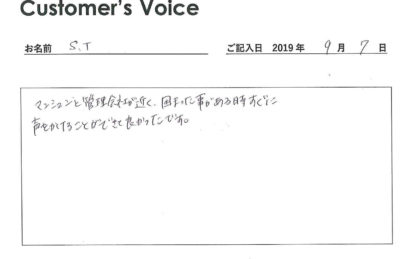 Customer's Voice
お名前 S.T ご記入日 2019 年 9 月 7 日
マンションと管理会社が近く、困った事がある時すぐに
声をかけることができて良かったです。